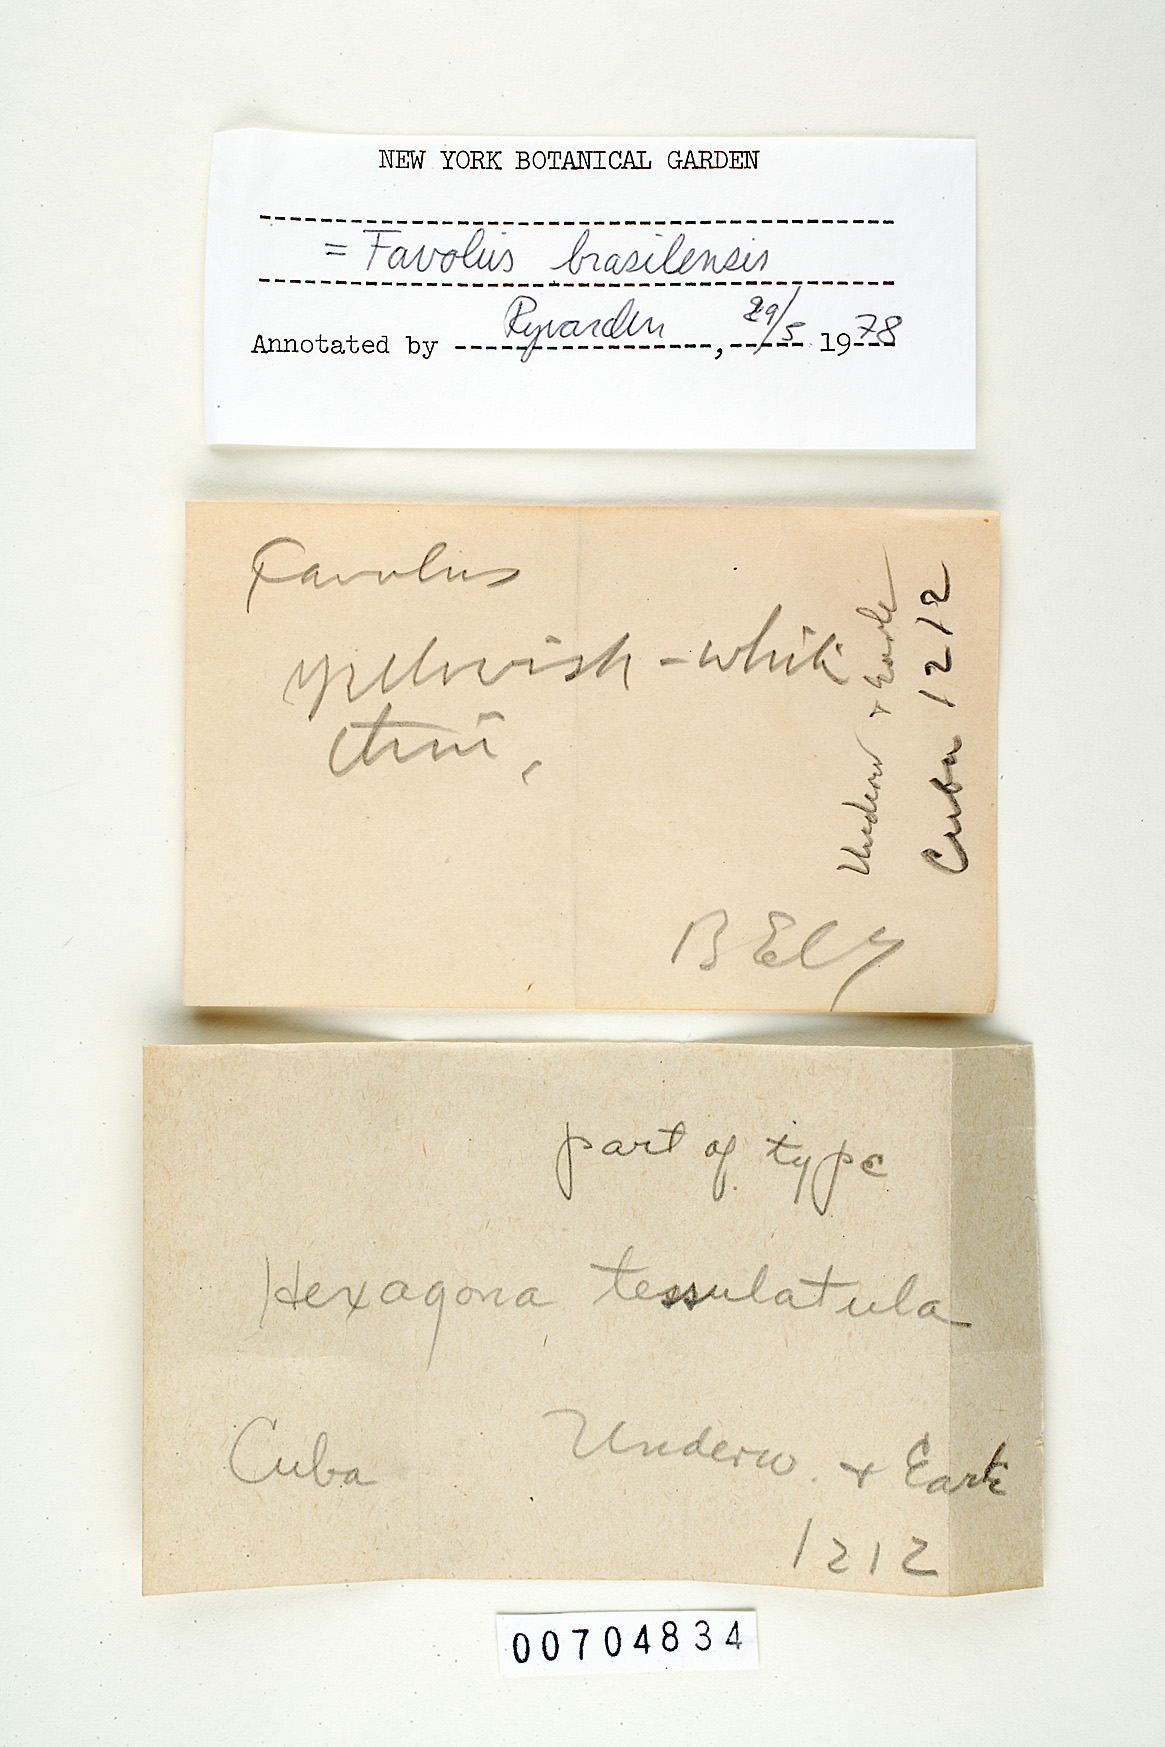 NEW YORK BOTANICAL GARDEN
= Favolus brasilensis
Annotated by Ryvarden, 29/5 1978
Favolus
yellowish-white
Underw & Earle
Cuba 1212
part of type
Hexagona tessulatula
Cuba Underw. & Earle
1212
00704834